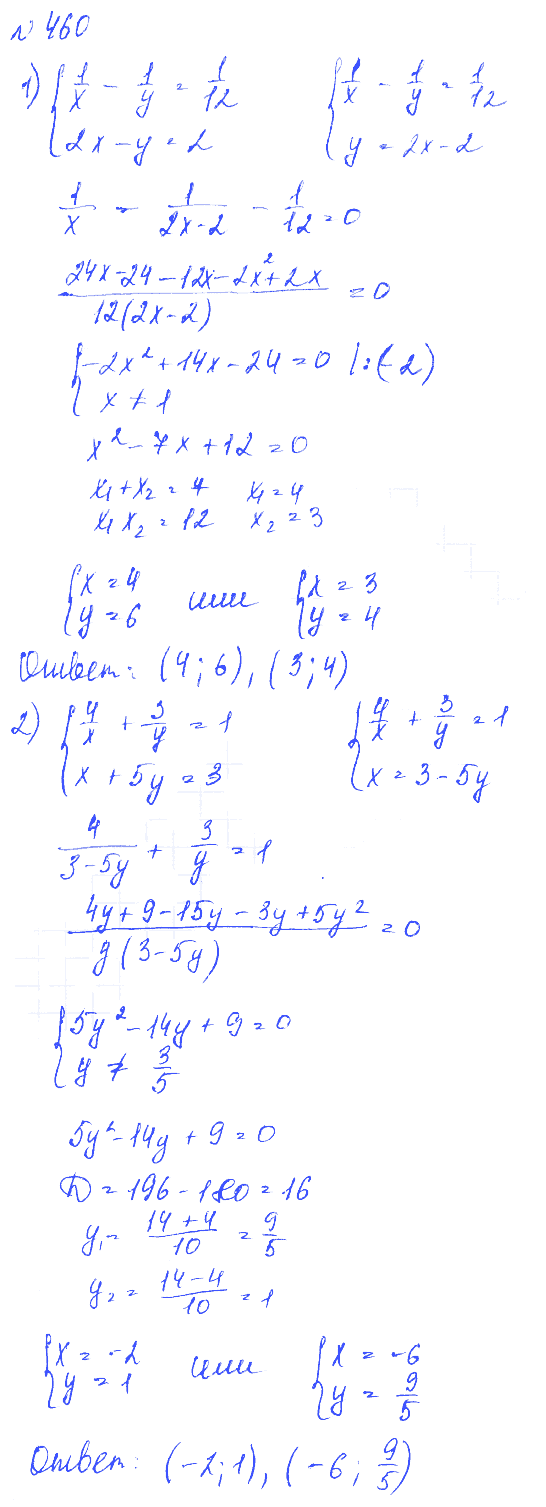 № 460
1) { 1/x - 1/y = 1/12   { 1/x - 1/y = 1/12
2x - y = 2   y = 2x - 2
1/x - 1/(2x-2) - 1/12 = 0
(24x - 24 - 12x - 2x² + 2x)/(12(2x-2)) = 0
{ -2x² + 14x - 24 = 0 |:(-2)
x ≠ 1
x² - 7x + 12 = 0
x₁ + x₂ = 7   x₁ = 4
x₁x₂ = 12   x₂ = 3
{ x = 4   или   { x = 3
y = 6   y = 4
Ответ: (4; 6), (3; 4)
2) { 4/x + 3/y = 1   { 4/x + 3/y = 1
x + 5y = 3   x = 3 - 5y
4/(3-5y) + 3/y = 1
(4y + 9 - 15y - 3y + 5y²)/(y(3-5y)) = 0
{ 5y² - 14y + 9 = 0
y ≠ 3/5
5y² - 14y + 9 = 0
D = 196 - 180 = 16
y₁ = (14+4)/10 = 9/5
y₂ = (14-4)/10 = 1
{ x = -2   или   { x = -6
y = 1   y = 9/5
Ответ: (-2; 1), (-6; 9/5)